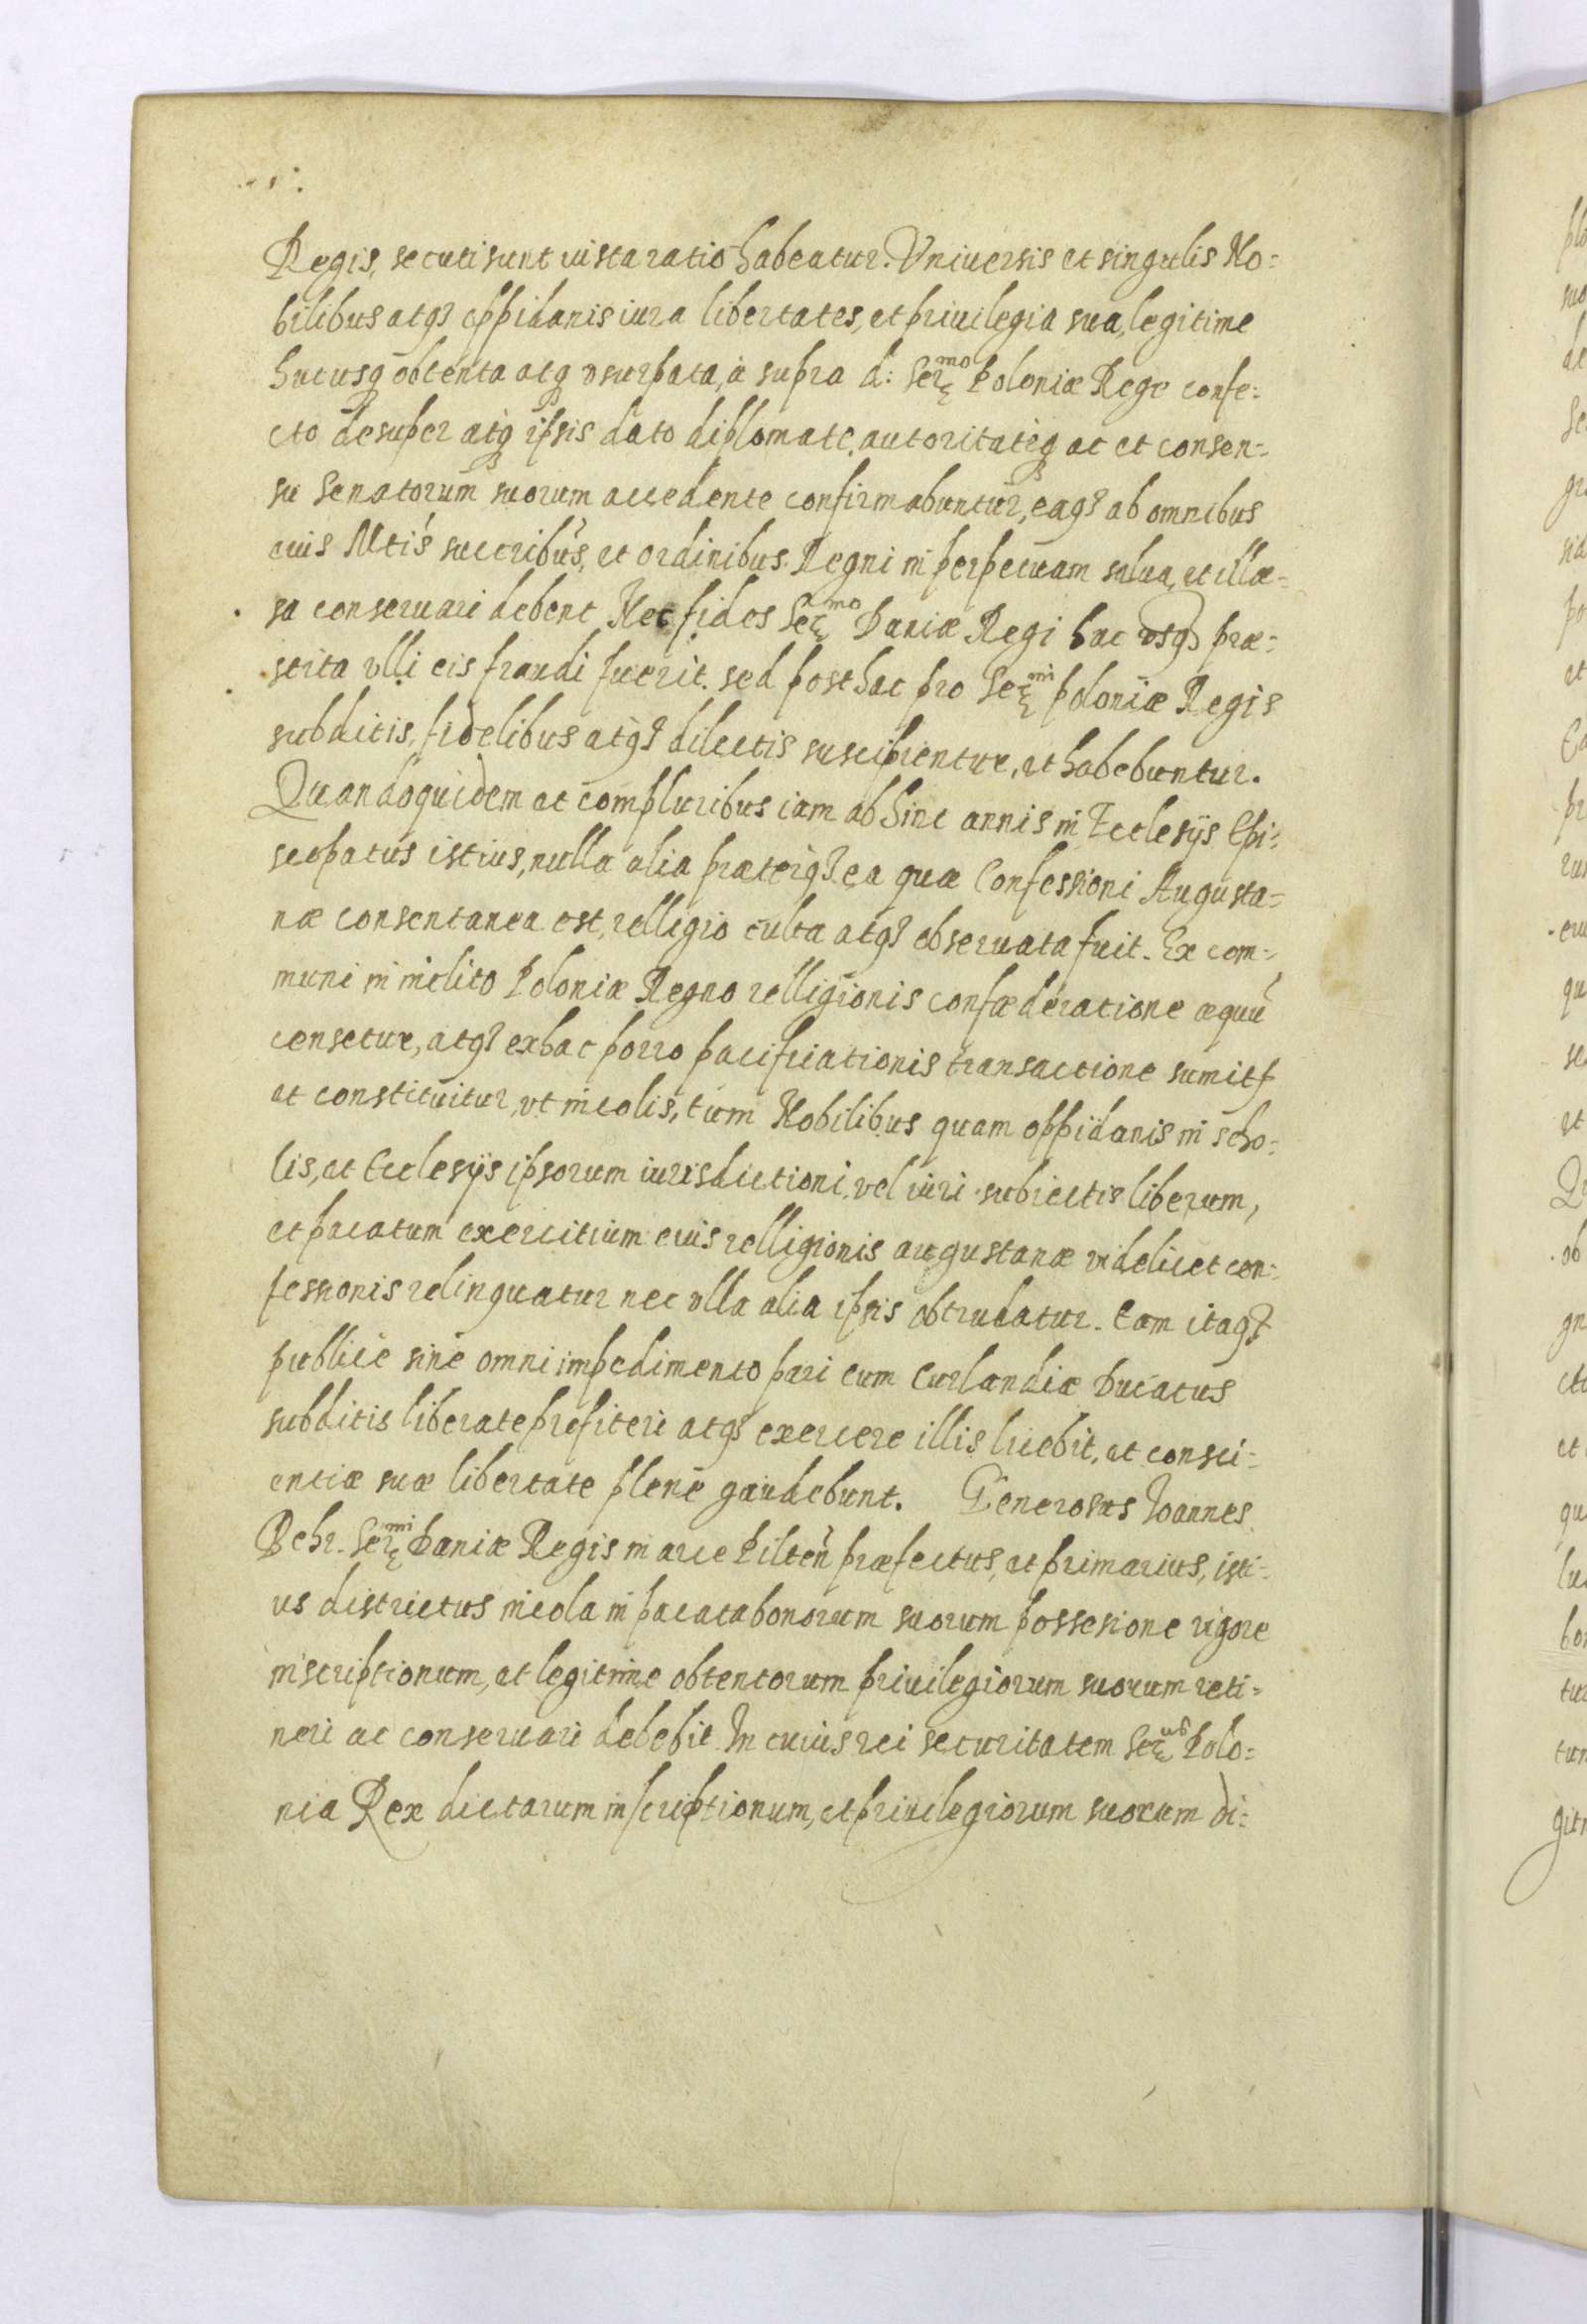 Regis, secuti sunt iusta ratio habeatur. Vniuersis et singulis No=
bilibus atq3 oppidanis iura libertates, et priuilegia sua, legitime
hucusq3 obtenta atq3 vsurpata, à supra d: Ser^mo Poloniæ Rege confe=
cto desuper atq3 ipsis dato diplomate, autoritateq3 ac et consen=
su Senatorum suorum accedente confirmabuntur, eaq3 ab omnibus
eius Mtis succribus, et ordinibus Regni in perpetuam salua, et illæ=
sa conseruari debent Nec fides Ser^mo Daniæ Regi hac vsq3 præ=
stita vlli eis fraudi fuerit. sed posthac pro Ser^mi Poloniæ Regis
subditis, fidelibus atq3 dilectis suscipientur, et habebuntur.
Quandoquidem at compluribus iam abhinc annis in Ecclesijs Epi=
scopatus istius, nulla alia præterq3 ea quæ Confessioni Augusta=
næ consentanea est, relligio culta atq3 obseruata fuit. Ex com=
muni in inclito Poloniæ Regno relligionis confæderatione æquũ
censetur, atq3 ex hac porro pacificationis transactione sumitr
at constituitur, vt incolis, tum Nobilibus quam oppidanis in scho=
lis, at Ecclesijs ipsorum iurisdictioni, vel iuri subiectis liberum,
et pacatum exercitium eius relligionis augustanæ videlicet con=
fessionis relinquatur nec vlla alia ipsis obtrudatur. Eam itaq3
publicè sine omni impedimento pari cum Curlandiæ Ducatus
subditis liberate profiteri atq3 exercere illis licebit, at consci=
entiæ suæ libertate plene gaudebunt. Generosus Ioannes
Behr. Ser^mi Daniæ Regis in arce Pilten præfectus, at primarius, isti=
us districtus incola in pacata bonorum suorum possesione vigore
inscriptionum, at legitime obtentorum priuilegiorum suorum reti=
neri ac conseruari debebit In cuius rei securitatem Ser^us Polo=
nia Rex dictarum inscriptionum, et priuilegiorum suorum di=